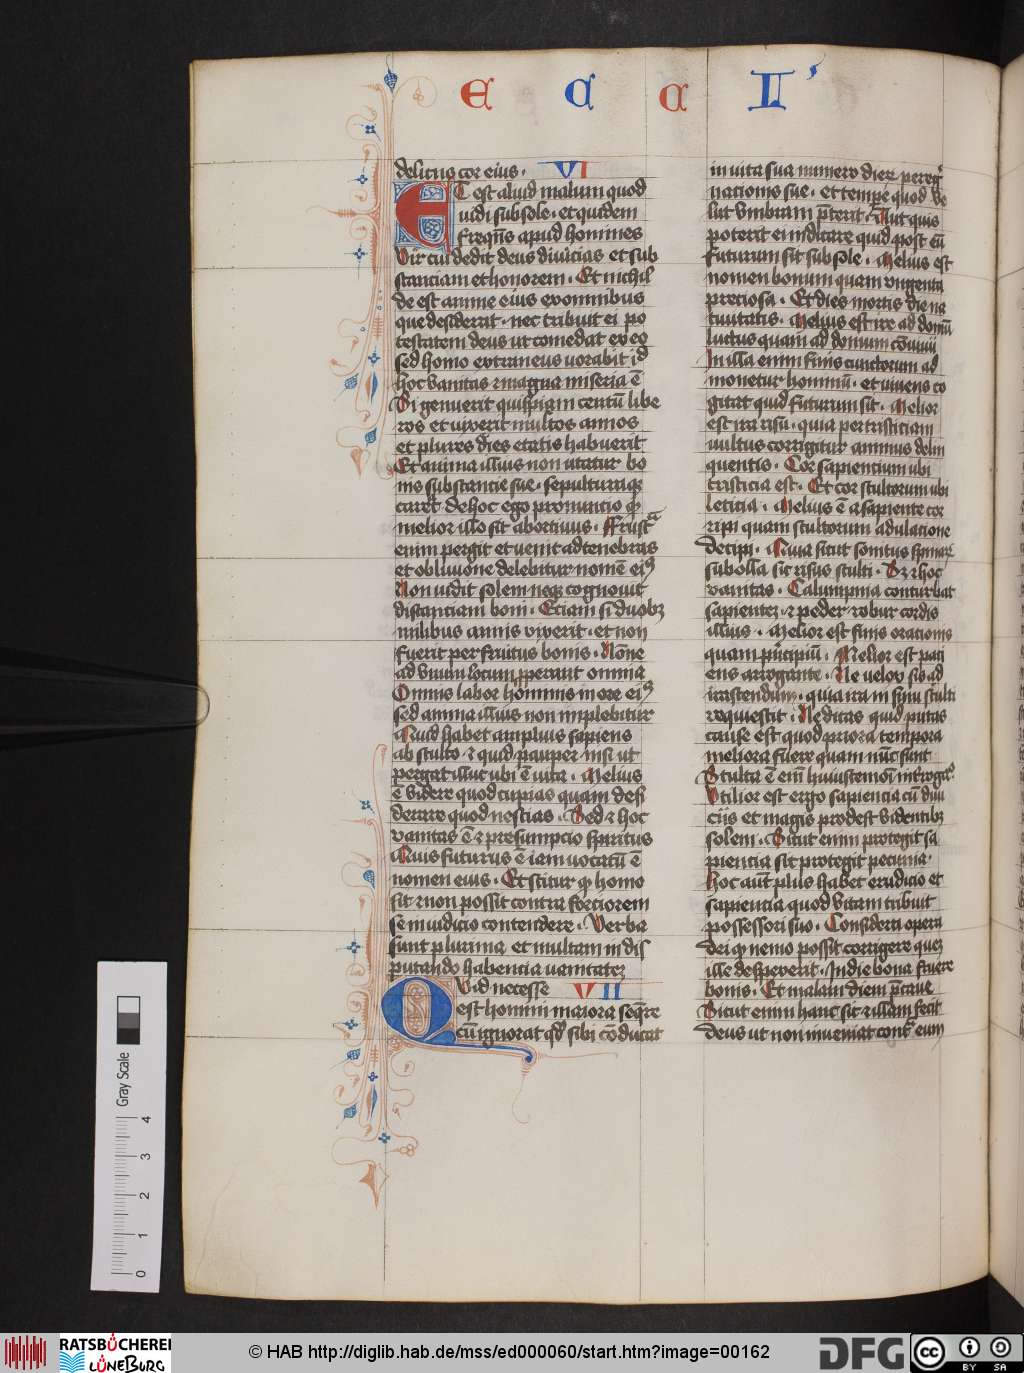 E C C Lꝰ
deliciis cor eius · VI
Et est aliud malum quod
uidi sub sole · et quidem
freque̅s apud homines
Vir cui dedit deus diuicias et sub
stanciam et honorem · Et nichil
de est anime eius ex omnibus
que desiderat · nec tribuit ei po
testatem deus ut comedat ex eo
sed homo extraneus uorabit id
hoc vanitas ⁊ magna miseria e̅
Si genuerit quispiam centu̅ libe
ros et vixerit multos annos
et plures dies etatis habuerit
Et anima illius non utatur bo
nis substantie sue · sepulturaqꝫ
careat de hoc ego pronuncio ꝙ
melior illo sit abortiuus · Frustra
enim pergit et uenit ad tenebras
et obliuione delebitur nome̅ eiꝰ
Non uidit solem neqꝫ cognouit
distanciam boni · Eciam si duobꝫ
milibus annis vixerit · et non
fuerit perfruitus bonis · No̅ne
ad vnum locum pperant omnia
Omnis labor hominis in ore eiꝰ
sed anima illius non implebitur
Quid habet amplius sapiens
ab stulto · ⁊ quid pauper nisi ut
pergat illuc ubi e̅ uita · Melius
e̅ videre quod cupias quam desi
derare quod nescias · Sed ⁊ hoc
vanitas e̅ ⁊ presumpcio spiritus
Quis futurus e̅ iam uocatu̅ e̅
nomen eius · Et scitur ꝙ homo
sit ⁊ non possit contra forciorem
se in iudicio contendere · Verba
sunt plurima et multam in dis
putando habencia uanitateꝫ
Quid necesse VII
est homini maiora seq̅re
cu̅ ignorat qd̕ sibi co̅ducat
in uita sua numero dieꝝ peregͥ
nacionis sue · et tempe quod ve
lut vmbram p̅terit · Aut quis
poterit ei indicare quid post eu̅
futurum sit sub sole · Melius est
nomen bonum quam vngenta
preciosa · Et dies mortis die na
tiuitatis · Melius est ire ad domu̅
luctus quam ad domum co̅uiuii
In illa enim finis cunctorum ad
monetur hominu̅ · et viuens co
gitat quid futurum sit · Melior
est ira risu · quia per tristiciam
uultus corrigitur animus delin
quentis · Cor sapientium ubi
tristicia est · Et cor stultorum ubi
leticia · Melius e̅ a sapiente cor
ripi quam stultorum adulacione
decipi · Quia sicut sonitus spinaꝝ
sub olla sic risus stulti · Sꝫ ⁊ hoc
vanitas · Calumpnia conturbat
sapienteꝫ · ⁊ perdet robur cordis
illius · Melior est finis oracionis
quam principiu̅ · Melior est paci
ens arrogante · Ne velox sis ad
irascendum · quia ira in sinu stulti
requiescit · Ne dicas quid putas
cause est quod priora tempora
meliora fuere quam nu̅c sunt
Stulta e̅ em̅ huiuscemodi interogacͦ
Vtilior est ergo sapiencia cu̅ diui
ciis et magis prodest videntibꝫ
solem · Sicut enim protegit sa
piencia sic protegit pecunia ·
Hoc aut̅ plus habet erudicio et
sapiencia quod vitam tribuit
possessori suo · Considera opera
dei ꝙ nemo possit corrigere queꝫ
ille despexerit · In die bona fruere
bonis · Et malam diem p̅caue
Sicut enim hanc sic ⁊ illam fecit
deus ut non inueniat contra eum
Gray Scale
0 1 2 3 4
RATSBÜCHEREI
LÜNEBURG
© HAB http://diglib.hab.de/mss/ed000060/start.htm?image=00162
DFG
cc BY SA